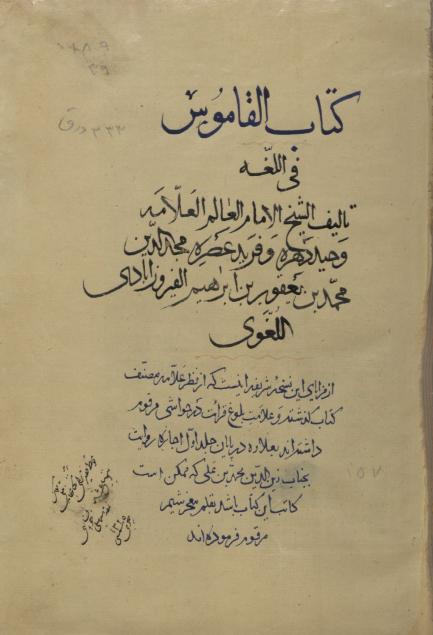 ١٨٨٩
٣٩
٣٣٣ ورق
كتاب القاموس
في اللغه
تاليف الشيخ الامام العالم العلّامه
وحيد دهره وفريد عصره مجد الدين
محمد بن يعقوب بن ابراهيم الفيروزآبادي
اللّغوي
از مزایای این نسخه شریفه اینست که از نظر علامه مصنف
کتاب گذشته و علامت بلوغ قرائت در حواشی مرقوم
داشته‌اند بعلاوه در پایان جلد اول اجازه روایت
بجناب زین الدین محمد بن علی که ممکن است
کاتب این کتاب باشد بقلم معجز شیم
مرقوم فرموده‌اند
١٥٧